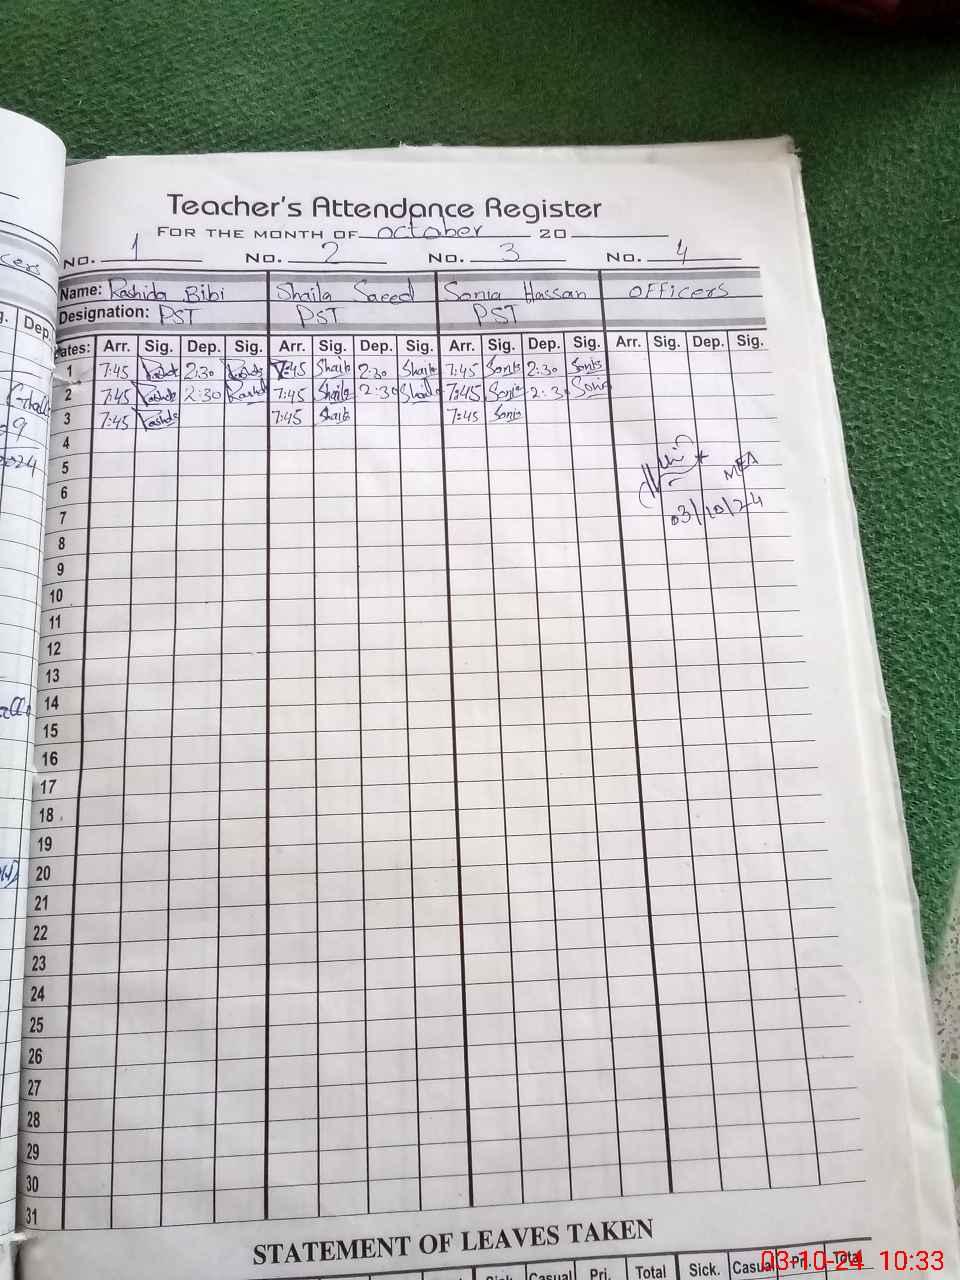 Teacher's Attendance Register
FOR THE MONTH OF October 20
NO. 1 NO. 2 NO. 3 NO. 4
Name: Rashida Bibi Shaila Saeed Sonia Hassan OFFICERS
Designation: PST PST PST
Dates: Arr. Sig. Dep. Sig. Arr. Sig. Dep. Sig. Arr. Sig. Dep. Sig. Arr. Sig. Dep. Sig.
1 7:45 Rashida 2:30 Rashida 7:45 Shaila 2:30 Shaila 7:45 Sonia 2:30 Sonia
2 7:45 Rashida 2:30 Rashida 7:45 Shaila 2:30 Shaila 7:45 Sonia 2:30 Sonia
3 7:45 Rashida 7:45 Shaila 7:45 Sonia
4
5
6 MEA
7 03/10/24
8
9
10
11
12
13
14
15
16
17
18
19
20
21
22
23
24
25
26
27
28
29
30
31
STATEMENT OF LEAVES TAKEN
Sick. Casual Pri. Total Sick. Casual Pri. Total
03-10-24 10:33